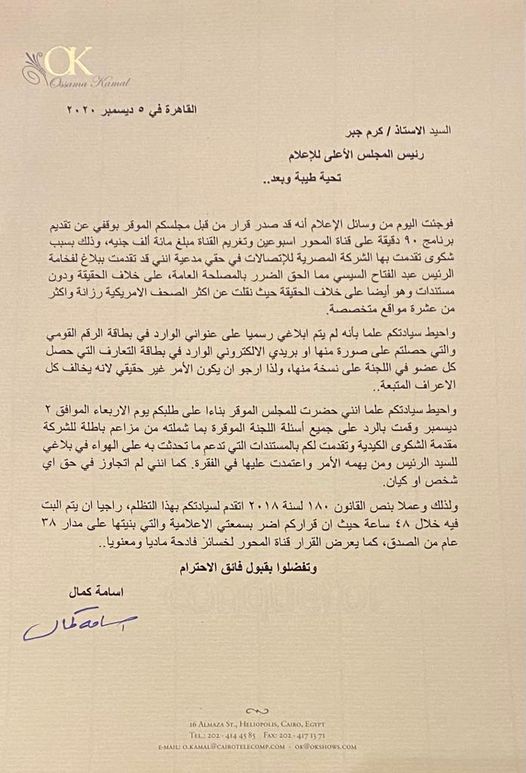 OK
Ossama Kamal
القاهرة في ٥ ديسمبر ٢٠٢٠
السيد الاستاذ / كرم جبر
رئيس المجلس الأعلى للإعلام
تحية طيبة وبعد..
فوجئت اليوم من وسائل الإعلام أنه قد صدر قرار من قبل مجلسكم الموقر بوقفي عن تقديم
برنامج ٩٠ دقيقة على قناة المحور اسبوعين وتغريم القناة مبلغ مائة ألف جنيه، وذلك بسبب
شكوى تقدمت بها الشركة المصرية للإتصالات في حقي مدعية انني قد تقدمت ببلاغ لفخامة
الرئيس عبد الفتاح السيسي مما الحق الضرر بالمصلحة العامة، على خلاف الحقيقة ودون
مستندات وهو أيضا على خلاف الحقيقة حيث نقلت عن اكثر الصحف الامريكية رزانة واكثر
من عشرة مواقع متخصصة.
واحيط سيادتكم علما بأنه لم يتم ابلاغي رسميا على عنواني الوارد في بطاقة الرقم القومي
والتي حصلتم على صورة منها او بريدي الالكتروني الوارد في بطاقة التعارف التي حصل
كل عضو في اللجنة على نسخة منها، ولذا ارجو ان يكون الأمر غير حقيقي لانه يخالف كل
الاعراف المتبعة..
واحيط سيادتكم علما انني حضرت للمجلس الموقر بناءا على طلبكم يوم الاربعاء الموافق ٢
ديسمبر وقمت بالرد على جميع أسئلة اللجنة الموقرة بما شملته من مزاعم باطلة للشركة
مقدمة الشكوى الكيدية وتقدمت لكم بالمستندات التي تدعم ما تحدثت به على الهواء في بلاغي
للسيد الرئيس ومن يهمه الأمر واعتمدت عليها في الفقرة. كما انني لم اتجاوز في حق اي
شخص او كيان.
ولذلك وعملا بنص القانون ١٨٠ لسنة ٢٠١٨ اتقدم لسيادتكم بهذا التظلم، راجيا ان يتم البت
فيه خلال ٤٨ ساعة حيث ان قراركم اضر بسمعتي الاعلامية والتي بنيتها على مدار ٣٨
عام من الصدق، كما يعرض القرار قناة المحور لخسائر فادحة ماديا ومعنويا..
وتفضلوا بقبول فائق الاحترام
اسامة كمال
اسامة كمال
16 Almaza St., Heliopolis, Cairo, Egypt
Tel.: 202 - 414 45 85 Fax: 202 - 417 13 71
e-mail: o.kamal@cairotelecomp.com - ok@okshows.com